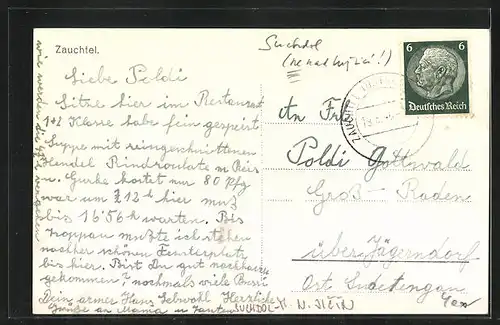 Zauchtel.
Suchdol
Liebe Poldi
Sitze hier im Restaurant
1+2 Klasse habe fein gespeist
Suppe mit reingeschnittenen
Gurke kostet nur 80 Pfg
war um 12 h hier muß
bis 16'56 h warten. Bis
Troppau mußte ich stehen
nachher schönen Fensterplatz
bis hier. Bist Du gut nachhause
gekommen, nochmals viele
Dein armer Hans Herzliche
Grüße an Mama u Tanten
wie werden die
An Frl
Poldi Gottwald
Groß-Raden
über Jägerndorf
Ost
SUCHDOL
6 6
Deutsches Reich
ZAUCHTEL